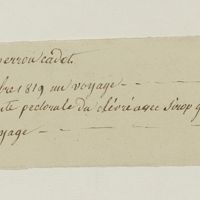 perron cadet
bre 1819 un voyage
te pectorale du chevré agec Sirop g
oyage